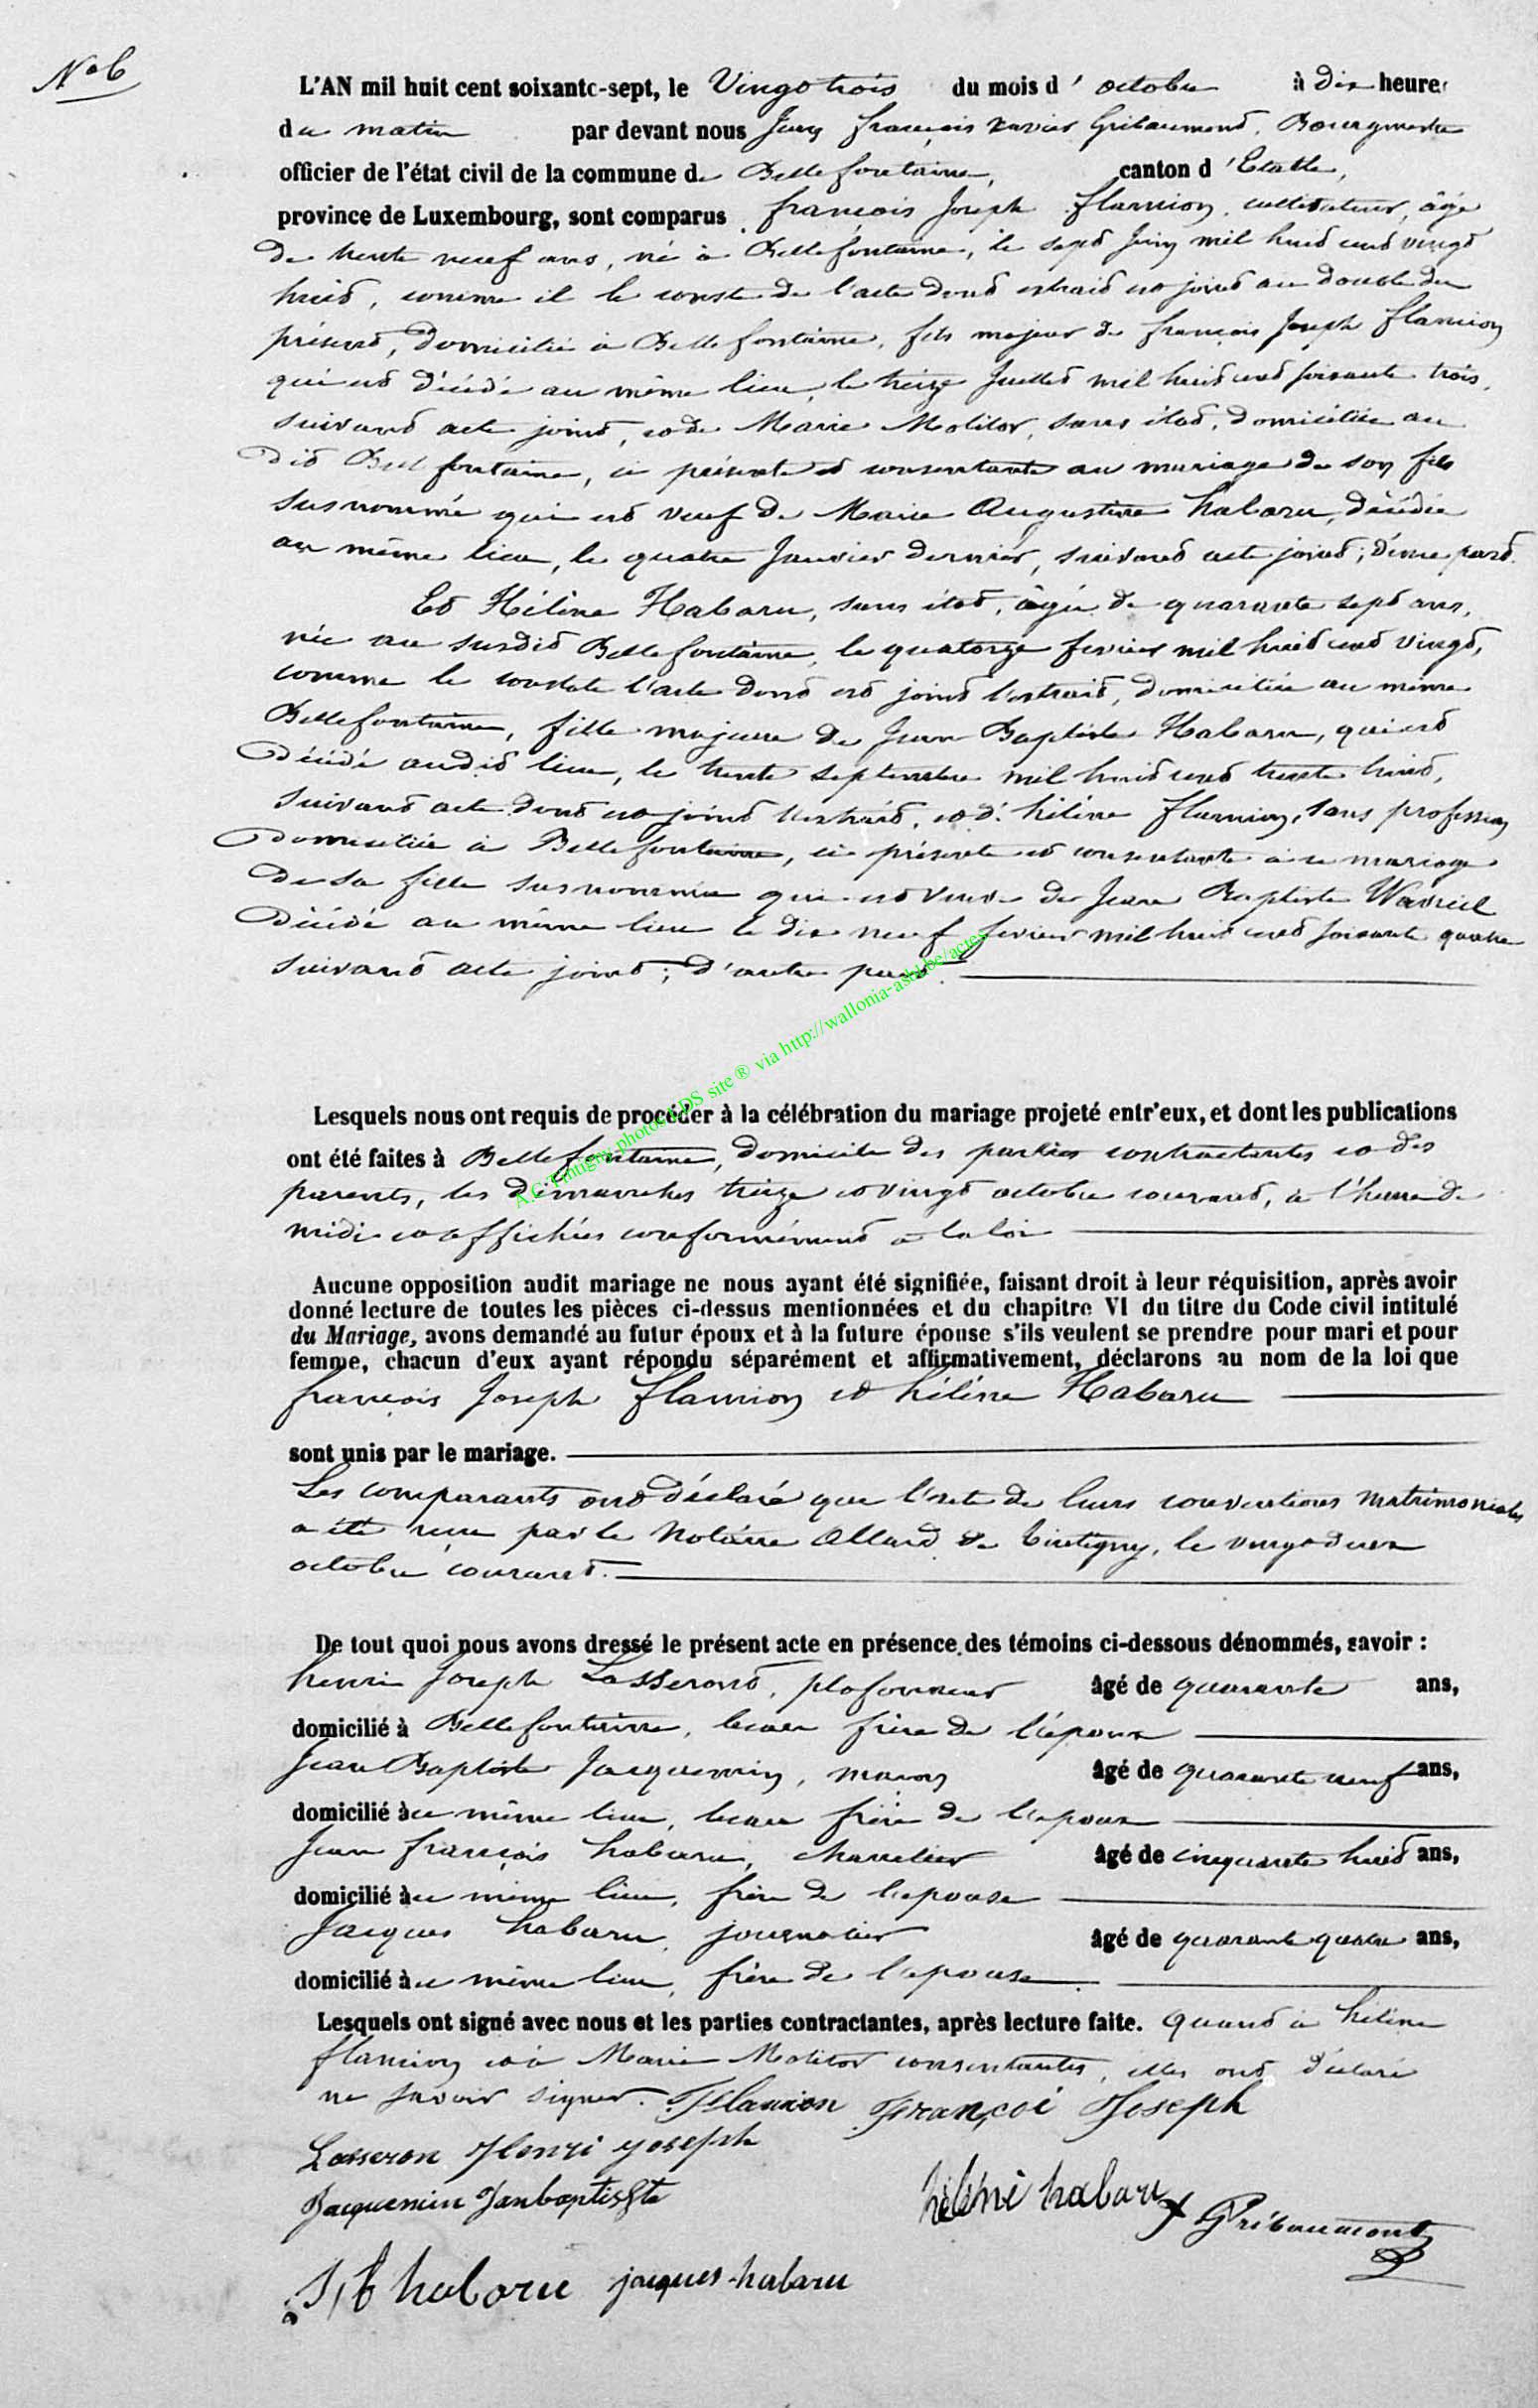 N° 6
L'AN mil huit cent soixante-sept, le Vingt trois du mois d' octobre à dix heures
du matin par devant nous Jean françois xavier Gribaumont, Bourgmestre
officier de l'état civil de la commune de Bellefontaine, canton d' Etalle,
province de Luxembourg, sont comparus françois Joseph flamion, cultivateur, âgé
de trente neuf ans, né à Bellefontaine, le sept Juin mil huit cent vingt
huit, comme il le conste de l'acte dont extrait est joint au double du
présent, domicilié à Bellefontaine, fils majeur de françois Joseph flamion
qui est décédé au même lieu, le treize Juillet mil huit cent soixante trois,
suivant acte joint, et de Marie Molitor, sans état, domiciliée au
dit Bellefontaine, ci présente et consentante au mariage de son fils
susnommé qui est veuf de Marie Augustine habaru, décédée
au même lieu, le quatre Janvier dernier, suivant acte joint; d'une part.
Et Hélène Habaru, sans état, âgée de quarante sept ans,
née au susdit Bellefontaine, le quatorze fevrier mil huit cent vingt,
comme le constate l'acte dont est joint l'extrait, domiciliée au même
Bellefontaine, fille majeure de Jean Baptiste Habaru, qui est
décédé audit lieu, le trente septembre mil huit cent trente huit,
suivant acte dont est joint l'extrait, et d' hélène flamion, sans profession
domiciliée à Bellefontaine, ci présente et consentante à ce mariage
de sa fille susnommée qui est veuve de Jean Baptiste Wavreil
décédé au même lieu le dix neuf fevrier mil huit cent soixante quatre
suivant acte joint; d'autre part.
A.C. Tintigny photos LDS site ® via http://wallonia-asbl.be/actes
Lesquels nous ont requis de procéder à la célébration du mariage projeté entr'eux, et dont les publications
ont été faites à Bellefontaine, domicile des parties contractantes et des
parents, les dimanches treize et vingt octobre courant, à l'heure de
midi et affichées conformément à la loi
Aucune opposition audit mariage ne nous ayant été signifiée, faisant droit à leur réquisition, après avoir
donné lecture de toutes les pièces ci-dessus mentionnées et du chapitre VI du titre du Code civil intitulé
du Mariage, avons demandé au futur époux et à la future épouse s'ils veulent se prendre pour mari et pour
femme, chacun d'eux ayant répondu séparément et affirmativement, déclarons au nom de la loi que
françois Joseph flamion et hélène Habaru
sont unis par le mariage.
Les comparants ont déclaré que l'acte de leurs conventions matrimoniales
a été reçu par le Notaire Allard de Tintigny, le vingt deux
octobre courant.
De tout quoi nous avons dressé le présent acte en présence des témoins ci-dessous dénommés, savoir :
henri Joseph Lasseront, plafonneur âgé de quarante ans,
domicilié à Bellefontaine, beau frère de l'époux
Jean Baptiste Jacquemin, maçon âgé de quarante neuf ans,
domicilié au même lieu, beau frère de l'époux
Jean françois habaru, charretier âgé de cinquante huit ans,
domicilié au même lieu, frère de l'épouse
Jacques habaru, journalier âgé de quarante quatre ans,
domicilié au même lieu, frère de l'épouse
Lesquels ont signé avec nous et les parties contractantes, après lecture faite. quant à hélène
flamion et à Marie Molitor consentantes, elles ont déclaré
ne savoir signer. Flamion Françoi Joseph
Lasseron Henri joseph
Jacquemin Janbaptisste hélénè habaru Gribaumont
J f habaru jacques habaru